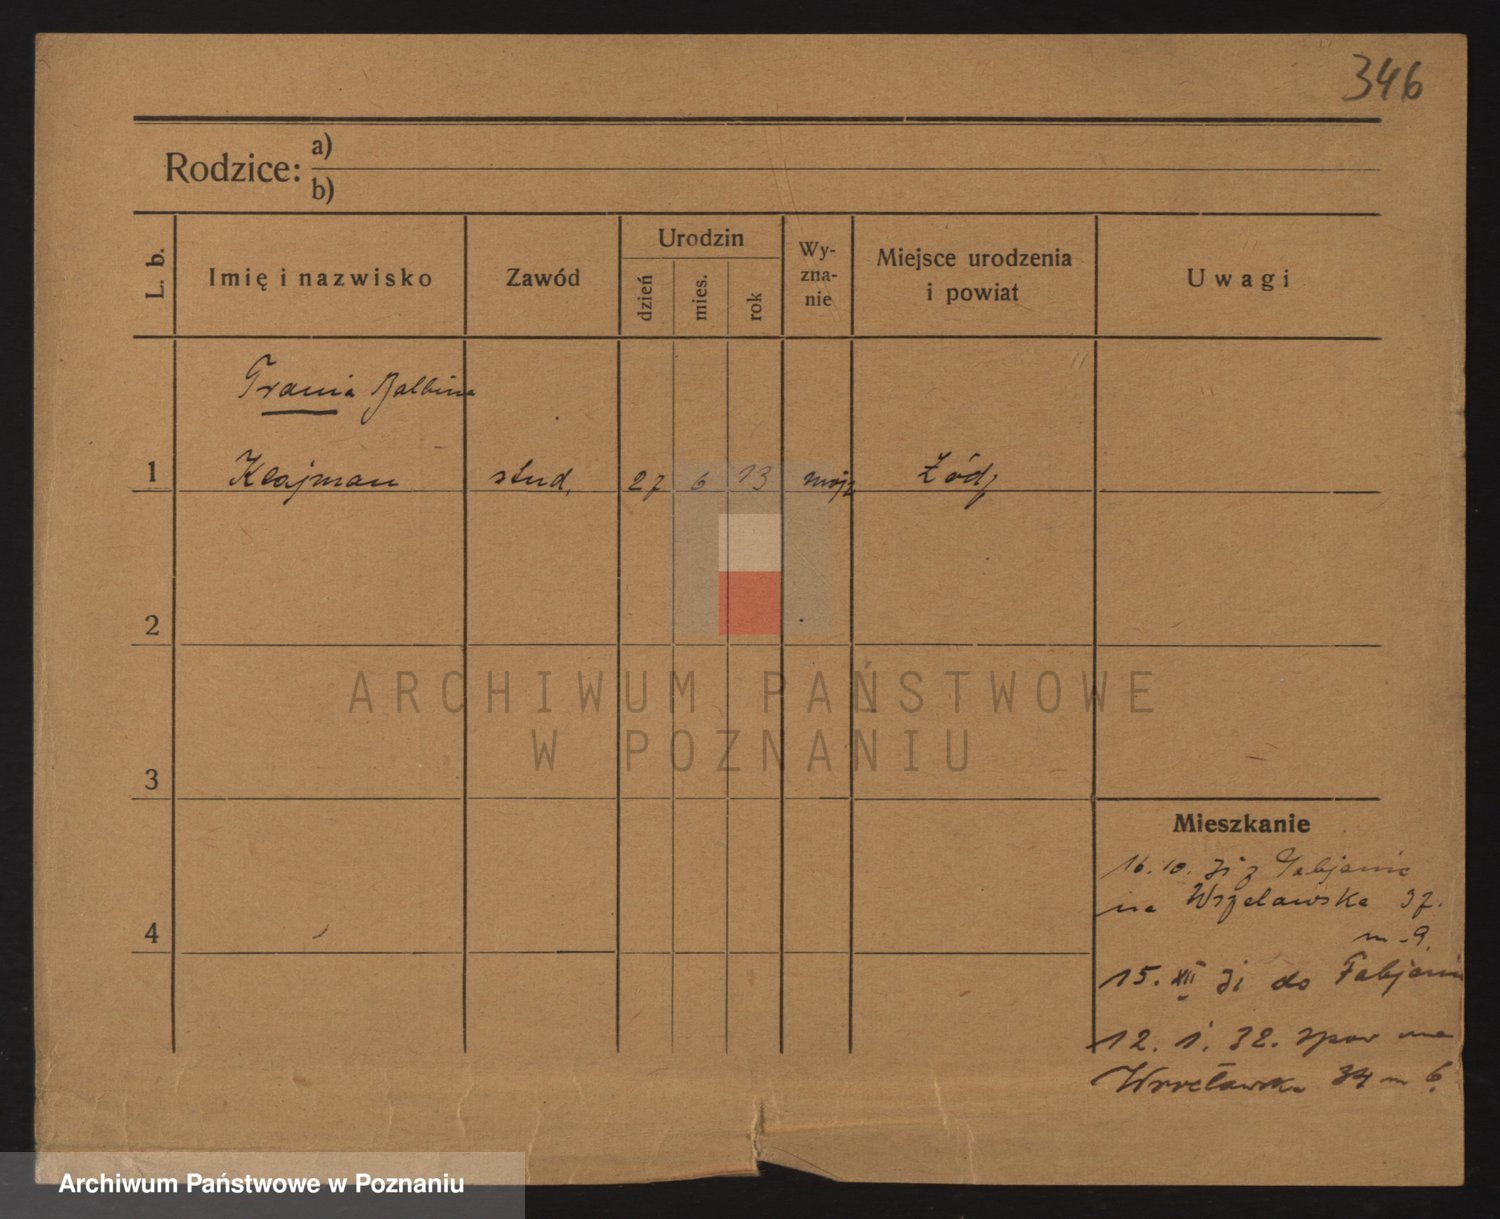 346
Rodzice: a)
b)
L. b.
Imię i nazwisko
Zawód
Urodzin
dzień
mies.
rok
Wy-
zna-
nie
Miejsce urodzenia
i powiat
Uwagi
Frania Balbina
1 Klajman stud. 27 6 13 mojż Łódź
2
3
4
Mieszkanie
16. 10. 31 z Pabjanic
na Wrocławska 37.
m - 9.
15. XII 31 do Pabjanic
12. 1. 32. spow na
Wrocławska 34 m 6.
ARCHIWUM PAŃSTWOWE
W POZNANIU
Archiwum Państwowe w Poznaniu